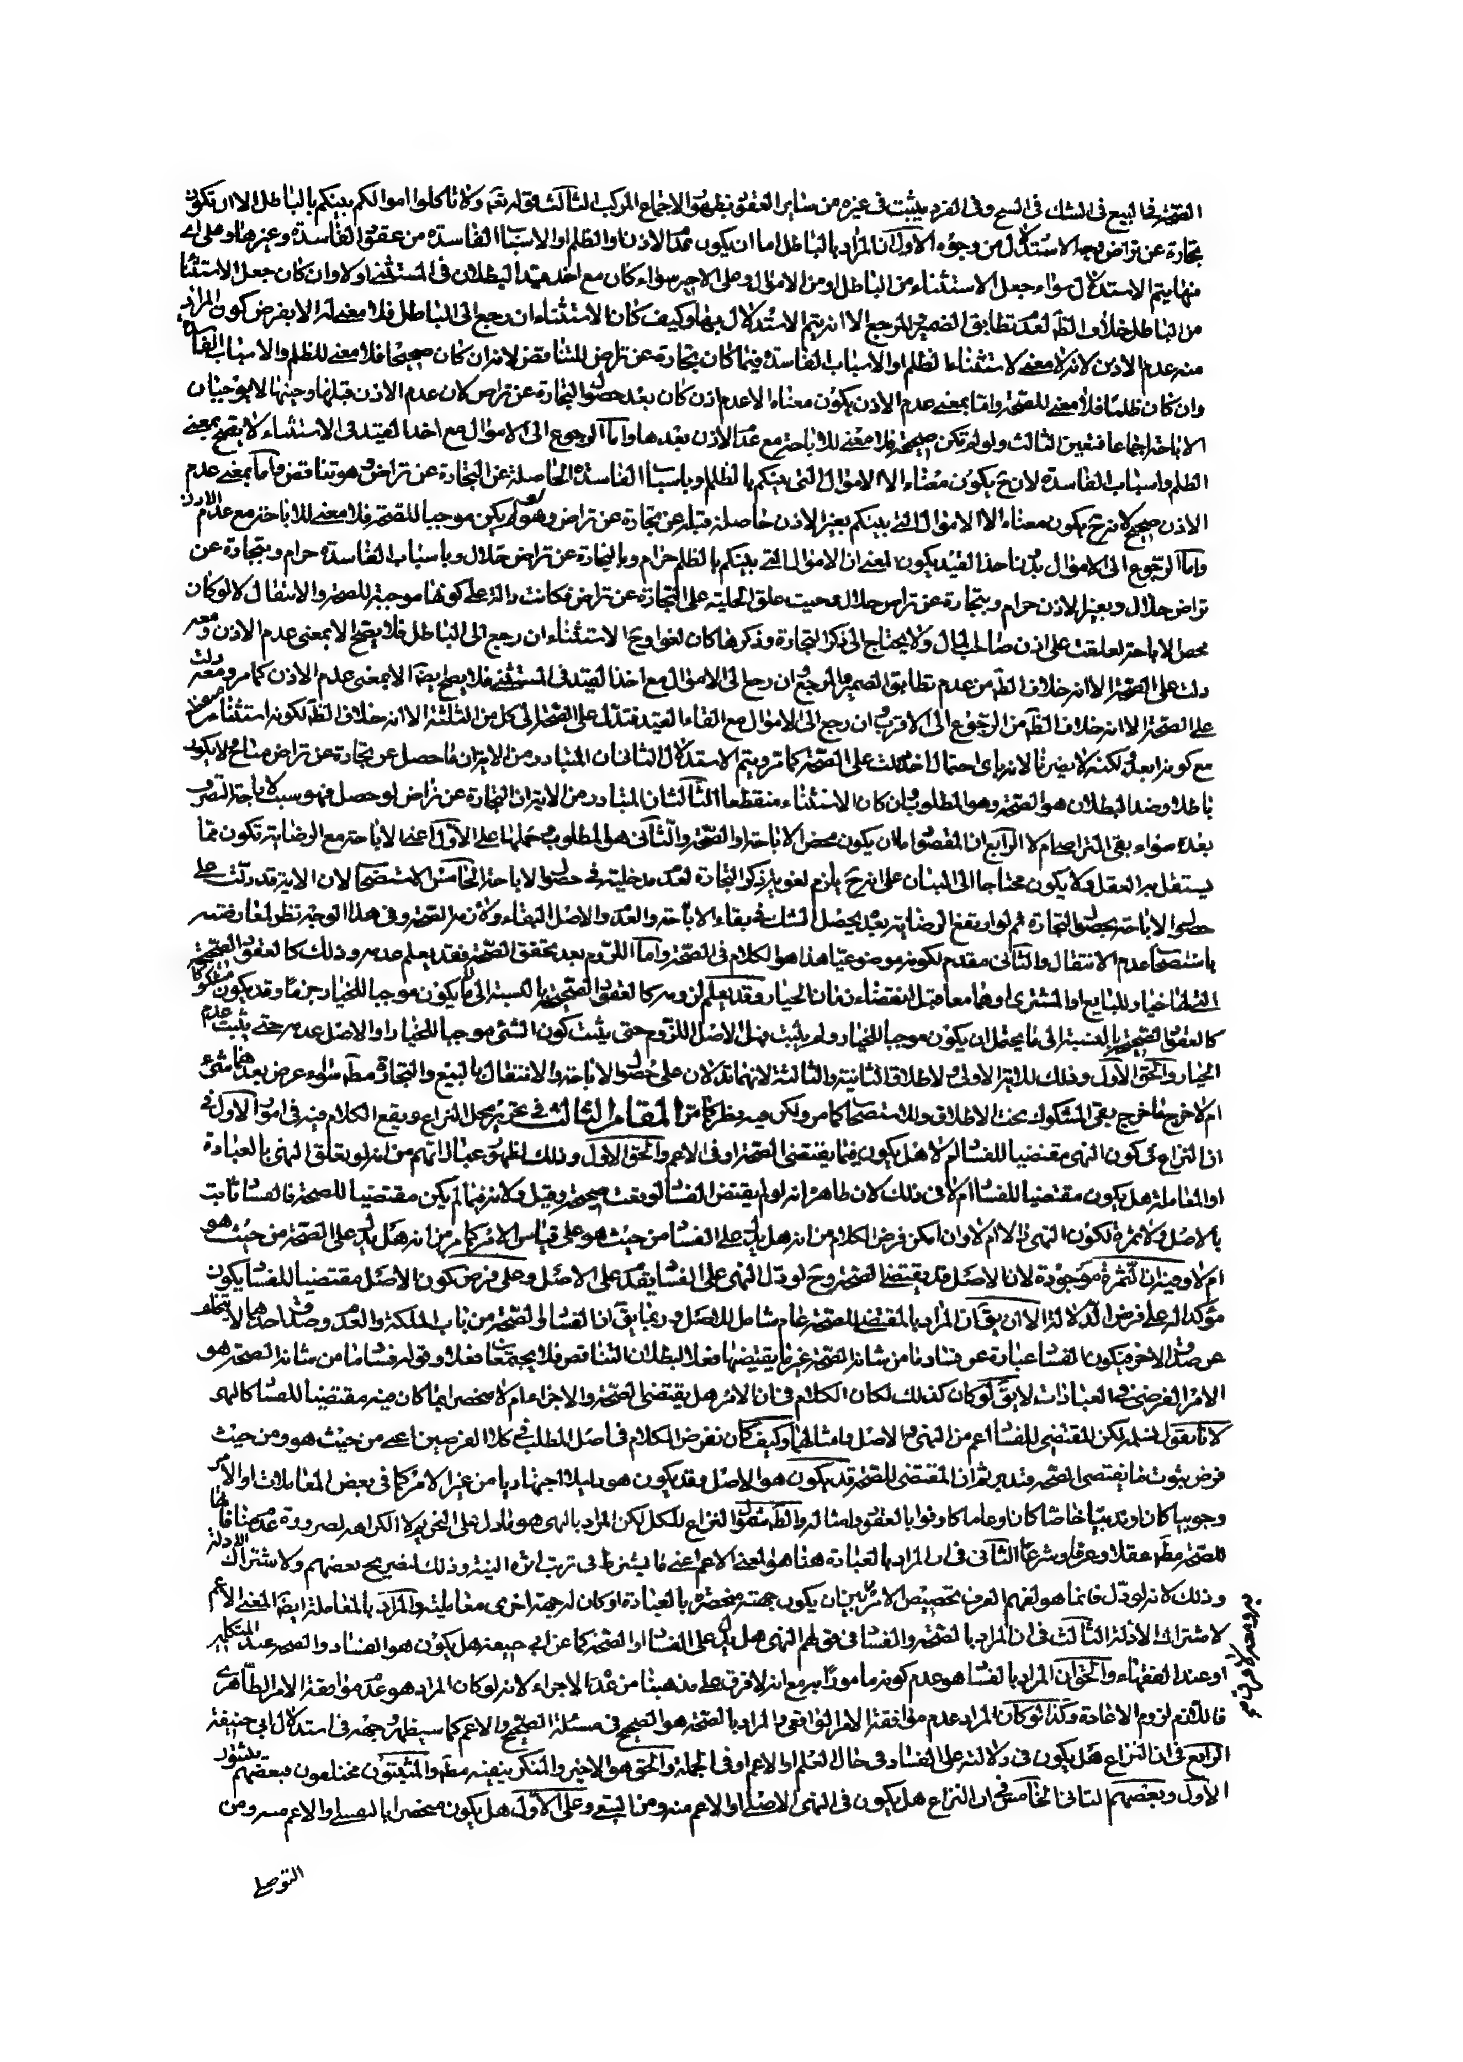 الصحة فالبيع فى الشك فى النسخ وفى الفرد يثبت فى غيره من سائر العقود بظهور الاجماع المركب الثالث قوله تعه ولا تاكلوا اموالكم بينكم بالباطل الا ان تكون
تجارة عن تراض وجه الاستدلال من وجوه الاول ان المراد بالباطل اما ان يكون عدم الاذن او الظلم او الاسباب الفاسدة من عقود الفاسدة وغيرها وعلى اى
منها يتم الاستدلال سواء جعل الاستثناء من الباطل او من الاموال وعلى الاخير سواء كان مع اخذ قيد البطلان فى المستثنى او لا وان كان جعل الاستثنا
من الباطل خلاف الظ لعدم تطابق الضمير للمرجع الا انه يتم الاستدلال بها وكيف كان الاستثناء ان رجع الى الباطل فلا معنى له الا بفرض كون المراد
منه عدم الاذن لانه لا معنى لاستثناء الظلم او الاسباب الفاسدة فيما كان تجارة عن تراض للتناقض لانه ان كان صحيحا فلا معنى للظلم والاسباب الفاسدة
وان كان ظلما فلا معنى للصحة واما بمعنى عدم الاذن يكون معناه الا عدم اذن كان بعد حصول التجارة عن تراض لان عدم الاذن قبلها وحينها لا يوجبان
الاباحة اجماعا فتعين الثالث ولو لم تكن صحيحة فلا معنى للاباحة مع عدم الاذن بعدها واما الرجوع الى الاموال مع اخذ القيد فى الاستثناء لا يصح بمعنى
الظلم واسباب الفاسدة لان ح يكون معناه الا الاموال التى بينكم بالظلم وباسباب الفاسدة الحاصلة عن التجارة عن تراض وهو تناقض واما بمعنى عدم
الاذن صحيح لانه ح يكون معناه الا الاموال التى بينكم بغير الاذن حاصلة قبله عن تجارة عن تراض وهو لو لم يكن موجبا للصحة فلا معنى للاباحة مع عدم الاذن
واما الرجوع الى الاموال بدون اخذ القيد يكون المعنى ان الاموال التى بينكم بالظلم حرام وبالتجارة عن تراض حلال وباسباب الفاسدة حرام وبتجارة عن
تراض حلال وبغير الاذن حرام وبتجارة عن تراض حلال وحيث علق الحلية على التجارة عن تراض فكانت دالة على كونها موجبة للصحة والانتقال لا لو كان
محض الاباحة لعلقت على اذن صاحب المال ولا يحتاج الى ذكر التجارة وذكرها كان لغوا وح الاستثناء ان رجع الى الباطل فلا يصح الا بمعنى عدم الاذن ومعه
دلت على الصحة الا انه خلاف الظ من عدم تطابق الضمير والمرجع وان رجع الى الاموال مع اخذ القيد فى المستثنى فلا يصح ايضا الا بمعنى عدم الاذن كما مر ومعه دلت
على الصحة الا انه خلاف الظ من الرجوع الى الاقرب وان رجع الى الاموال مع القاء القيد فتدل على الصحة على كل من الثلثة الا انه خلاف الظ لكونه استثناء منقطعا
مع كونه ابعد لكنه لا يضرنا لانه باى احتمال اخذ دلت على الصحة كما مر ويتم الاستدلال الثانى ان المتبادر من الاية ان ما حصل عن تجارة عن تراض مباح ولا يكون
باطلا وضد البطلان هو الصحة وهو المطلوب وان كان الاستثناء منقطعا الثالث ان المتبادر من الاية ان التجارة عن تراض لو حصل فهو سبب لاباحة التصرف
بعده سواء بقى التراض ام لا الرابع ان المقصود اما ان يكون محض الاباحة او الصحة والثانى هو المطلوب وحملها على الاول اعنى الاباحة مع الرضاية تكون مما
يستقل به العقل ولا يكون محتاجا الى البيان على انه ح يلزم لغوية ذكر التجارة لعدم مدخليته فى حصول الاباحة الخامس الاستصحاب لان الاية قد دلت على
حصول الاباحة بحصول التجارة ثم لو ارتفع الرضاية بعد يحصل الشك فى بقاء الاباحة والعدم والاصل البقاء ولازمه الصحة وفى هذا الوجه نظر لمعارضته
باستصحاب عدم الانتقال والثانى مقدم لكونه موضوعيا هذا هو الكلام فى الصحة واما اللزوم بعد تحقق الصحة فقد يعلم عدمه وذلك كالعقود الصحيحة
التى لها خيار للبايع او المشترى او هما معا قبل انقضاء زمان الخيار وقد يعلم لزومه كالعقود الصحيحة بالنسبة الى ما لا يكون موجبا للخيار جزما وقد يكون مشكوكا
كالعقود الصحيحة بالنسبة الى ما يحتمل ان يكون موجبا للخيار ولم يثبت فهل الاصل اللزوم حتى يثبت كون الشئ موجبا للخيار او الاصل عدمه حتى يثبت عدم
الخيار والحق الاول وذلك للاية الاولى ولاطلاق الثانية والثالثة لانهما تدلان على حصول الاباحة والانتقال بالبيع والتجارة مط سواء عرض بعدهما شئ
ام لا خرج ما خرج بقى المشكوك تحت الاطلاق وللاستصحاب كما مر ولكن فيه نظر كما مر المقام الثالث فى تحرير محل النزاع ويقع الكلام فيه فى امور الاول فى
ان النزاع فى كون النهى مقتضيا للفساد ام لا هل يكون فيما يقتضى الصحة او فى الاعم والحق الاول وذلك لظهور عباراتهم من انه لو تعلق النهى بالعبادة
او المعاملة هل يكون مقتضيا للفساد ام لا فى ذلك لان ظاهره انه لو لم يقتض الفساد لوقعت صحيحة وقيل ولانه فيما لم يكن مقتضيا للصحة فالفساد ثابت
بالاصل ولا ثمرة لكون النهى دالا ام لا وان امكن فرض الكلام من انه هل يدل على الفساد من حيث هو على قياس الامر كما مر من انه هل يدل على الصحة من حيث هو
ام لا وفيه ان الثمرة موجودة لان الاصل قد يقتضى الصحة وح لو دل النهى على الفساد يقدم على الاصل وعلى فرض كون الاصل مقتضيا للفساد يكون
مؤكدا له على فرض الدلالة الا ان يق ان المراد بالمقتضى للصحة عام شامل للاصل وربما يق ان الفساد والصحة من باب الملكة والعدم وصدق احدهما لا يتخلف
عن صدق الاخر فيكون الفساد عبارة عن فساد ما من شانه الصحة غير ما يقتضيها فعلا لبطلان التناقض فلا يجتمعان فعلا وقوله فساد ما من شانه الصحة هو
الامر الفرضى فى العبادات لا يق لو كان كذلك لكان الكلام فى ان الامر هل يقتضى الصحة والاجزاء ام لا منحصرا بما كان فيه مقتضيا للفساد كالنهى
لانا نقول نسلمه لكن المقتضى للفساد اعم من النهى والاصل وامثالهما وكيف كان نفرض الكلام فى اصل المطلب فى كلا الفرضين اعنى من حيث هو ومن حيث
فرض ثبوت ما يقتضى الصحة فتدبر ثم ان المقتضى للصحة قد يكون هو الاصل وقد يكون هو دليلا اجتهاديا من غير الامر كما فى بعض المعاملات او الامر
وجوبيا كان او ندبيا خاصا كان او عاما كاوفوا بالعقود وامثاله والظ شمول النزاع للكل لكن المراد بالنهى هو ما دل على التحريم لا الكراهة لضرورة عدم منافاتها
للصحة مط عقلا وعرفا وشرعا الثانى فى ان المراد بالعبادة هنا هو المعنى الاعم اعنى ما يشترط فى ترتب اثره النية وذلك لتصريح بعضهم ولاشتراك الادلة
وذلك لانه لو دل فانما هو لفهم العرف تخصيص الامر بين ان يكون جهته منحصرة بالعبادة او كان له جهة اخرى معاملية والمراد بالمعاملة ايضا المعنى الاعم
لاشتراك الادلة الثالث فى ان المراد بالصحة والفساد فى قولهم النهى هل يدل على الفساد او الصحة كما عن ابى حنيفة هل يكون هو الفساد والصحة عند المتكلمين
او عند الفقهاء والحق ان المراد بالفساد هو عدم كونه مامورا به مع انه لا فرق على مذهبنا من عدم الاجزاء لانه لو كان المراد هو عدم موافقة الامر الظاهرى
فاللازم لزوم الاعادة وكذا لو كان المراد عدم موافقة الامر الواقعى والمراد بالصحة هو الصحيح فى مسئلة الصحيح والاعم كما سيظهر وجهه فى استدلال ابى حنيفة
الرابع فى ان النزاع هل يكون فى دلالته على الفساد فى حال العلم او الاعم او فى الجملة والحق هو الاخير والمنكر ينفيه مط والمثبتون مختلفون فبعضهم يقول
الاول وبعضهم الثانى الخامس فى ان النزاع هل يكون فى النهى الاصلى او الاعم منه ومن التبعى وعلى الاول هل يكون منحصرا بالنفسى او الاعم منه ومن
التوصلى